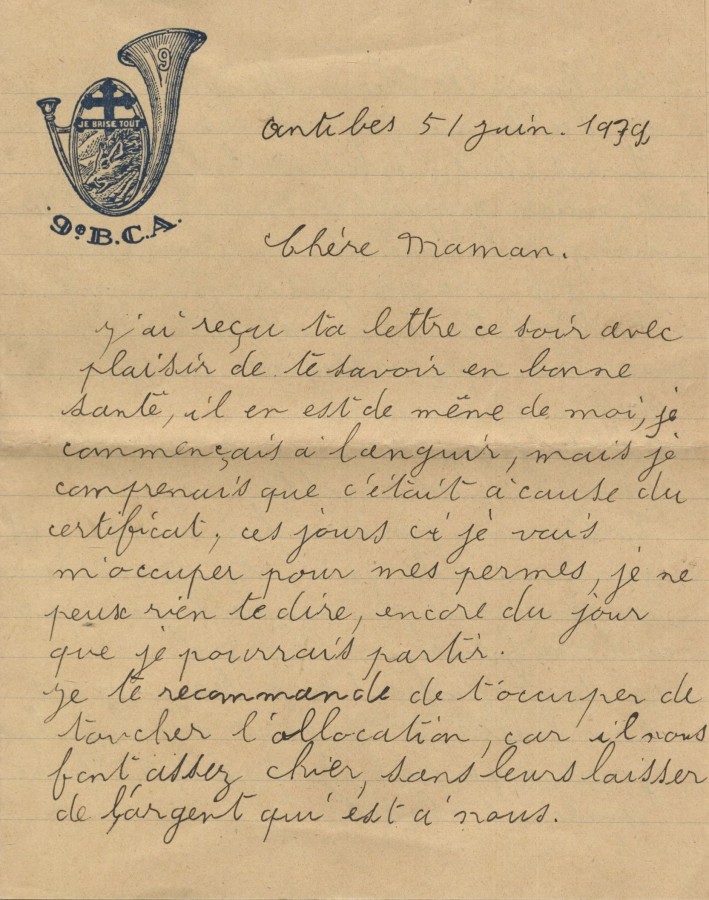 9
JE BRISE TOUT
9e B.C.A.
Antibes 5/ juin. 1939
Chére Maman.
j'ai reçu ta lettre ce soir avec
plaisir de te savoir en bonne
santé, il en est de même de moi, je
commençais a languir, mais je
comprenais que c'était a cause du
certificat, ces jours ci je vais
m'occuper pour mes permes, je ne
peux rien te dire, encore du jour
que je pourrais partir.
Je te recommande de t'occuper de
toucher l'allocation, car il nous
font assez chier, sans leurs laisser
de l'argent qui est a nous.